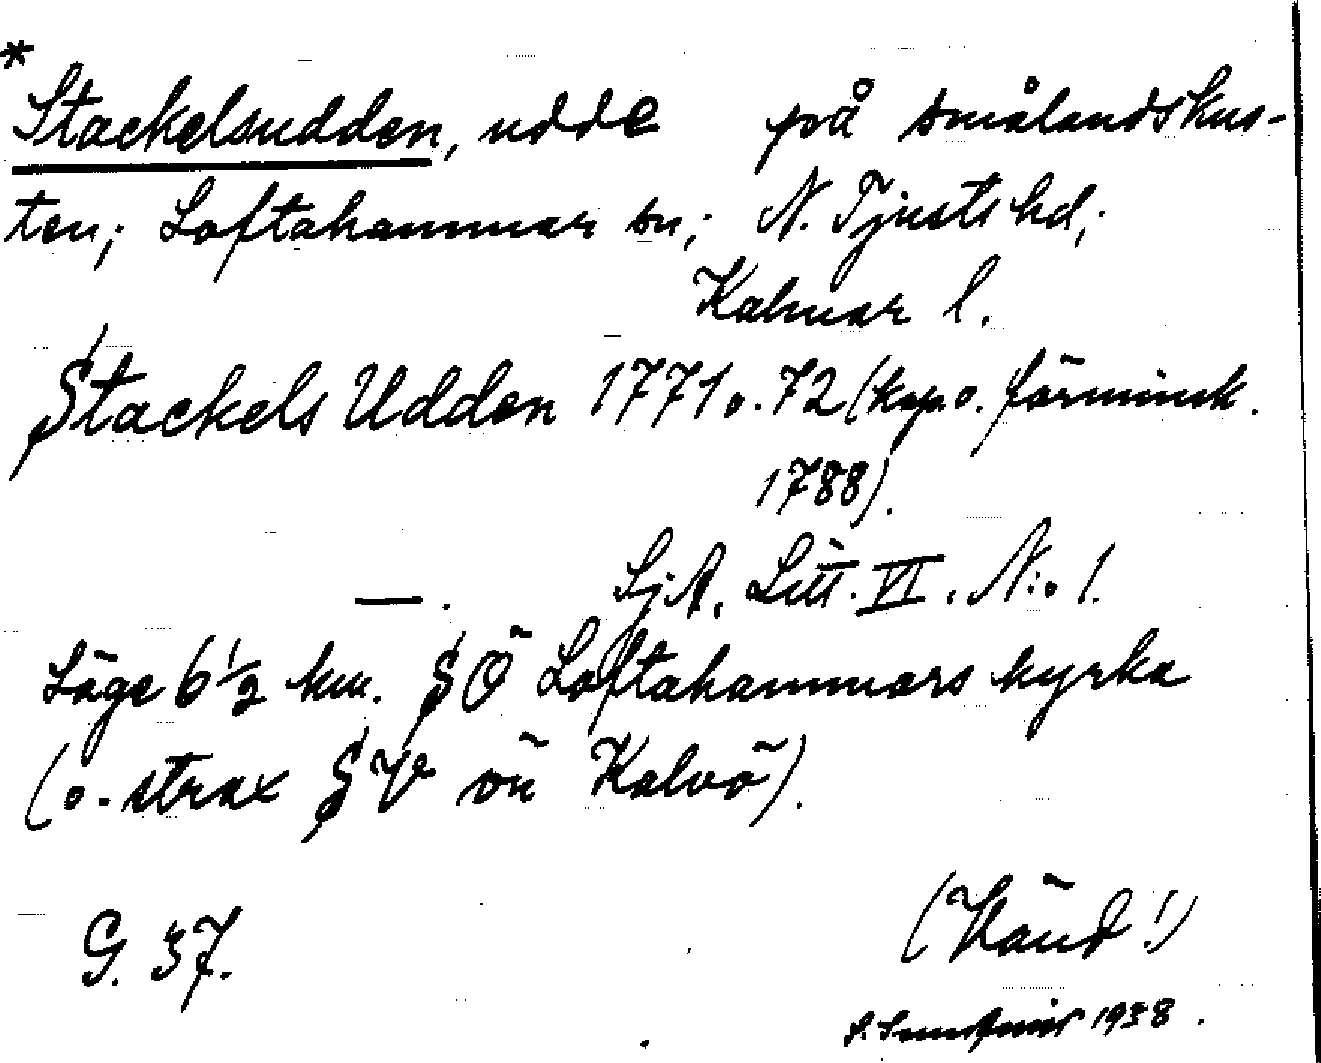 *
Stackelsudden, udde på smålandskus-
ten; Loftahammar sn; N. Tjusts hd;
Kalmar l.
Stackels Udden 1771 o. 72 (kop. o. förminsk.
1788).
—. SjA. Litt. VI. N:o 1.
Läge 6 1/2 km. SÖ Loftahammars kyrka
(o. strax SV om Kalvö).
G. 37.
(Vänd!)
1938.